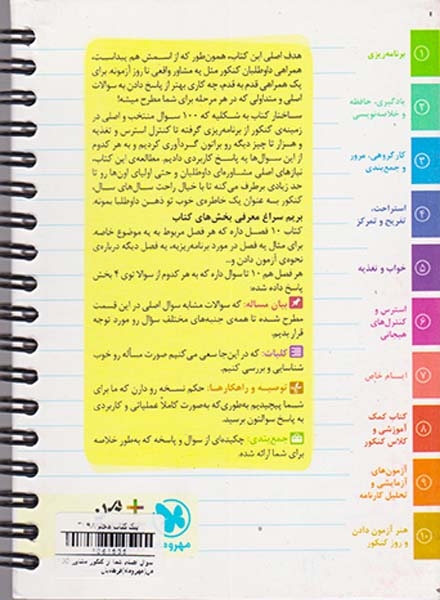 هدف اصلی این کتاب، همون‌طور که از اسمش هم پیداست،
همراهی داوطلبان کنکور مثل یه مشاور واقعی تا روز آزمونه. برای
یک همراهی قدم به قدم، چه کاری بهتر از پاسخ دادن به سوالات
اصلی و متداولی که در هر مرحله برای شما مطرح میشه!
ساختار کتاب به شکلیه که ۱۰۰ سوال منتخب و اصلی در
زمینه‌ی کنکور از برنامه‌ریزی گرفته تا کنترل استرس و تغذیه
و هزار تا چیز دیگه رو براتون گردآوری کردیم و به هر کدوم
از این سوال‌ها یه پاسخ کاربردی دادیم. مطالعه‌ی این کتاب،
نیازهای اصلی مشاوره‌ای داوطلبان و حتی اولیای اون‌ها رو تا
حد زیادی برطرف می‌کنه تا با خیال راحت سال‌های سال،
کنکور به عنوان یک خاطره‌ی خوب تو ذهن داوطلبا بمونه.
بریم سراغ معرفی بخش‌های کتاب
کتاب ۱۰ فصل داره که هر فصل مربوط به یه موضوع خاصه.
برای مثال یه فصل در مورد برنامه‌ریزیه، یه فصل دیگه درباره‌ی
نحوه‌ی آزمون دادن و...
هر فصل هم ۱۰ تا سوال داره که به هر کدوم از سوالا توی ۴ بخش
پاسخ داده شده:
بیان مساله: که سوالات مشابه سوال اصلی در این قسمت
مطرح شده تا همه‌ی جنبه‌های مختلف سؤال رو مورد توجه
قرار بدیم.
کلیات: که در این‌جا سعی می‌کنیم صورت مسأله رو خوب
شناسایی و بررسی کنیم.
توصیه و راهکارها: حکم نسخه رو دارن که ما برای
شما پیچیدیم به‌طوری که به‌صورت کاملاً عملیاتی و کاربردی
به پاسخ سوالتون برسید.
جمع‌بندی: چکیده‌ای از سوال و پاسخه که به‌طور خلاصه
برای شما ارائه شده.
۱ برنامه‌ریزی
۲ یادگیری، حافظه
و خلاصه‌نویسی
۳ کار گروهی، مرور
و جمع‌بندی
۴ استراحت،
تفریح و تمرکز
۵ خواب و تغذیه
۶ استرس و
کنترل‌های
هیجانی
۷ ایسام خاص
۸ کتاب کمک
آموزشی و
کلاس کنکور
۹ آزمون‌های
آزمایشی و
تحلیل کارنامه
۱۰ هنر آزمون دادن
و روز کنکور
مهروماه